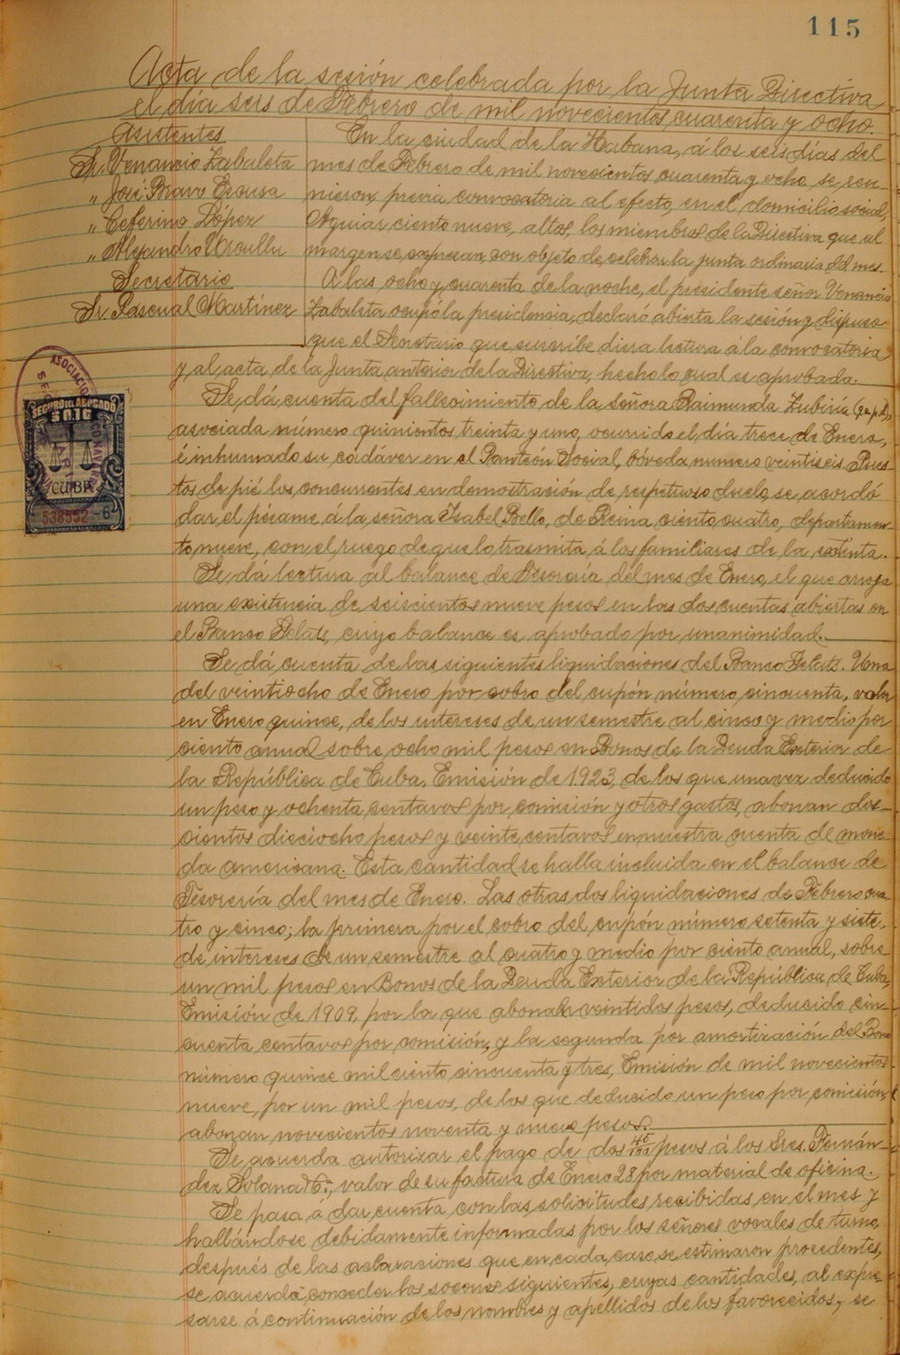 115
Acta de la sesión celebrada por la Junta Directiva
el día seis de Febrero de mil novecientos cuarenta y ocho.
Asistentes
Sr. Venancio Zabaleta
" José Bravo
" Ceferino López
" Alejandro Urcullu
Secretario
Sr. Pascual Martínez
En la ciudad de la Habana, á los seis días del
mes de Febrero de mil novecientos cuarenta y ocho, se reu-
nieron, previa convocatoria al efecto, en el domicilio social,
Aguiar ciento nueve, altos, los miembros de la Directiva que al
margen se expresan, con objeto de celebrar la junta ordinaria del mes.
A las ocho y cuarenta de la noche, el presidente señor Venancio
Zabaleta ocupó la presidencia, declaró abierta la sesión y dispuso
que el Secretario que suscribe diera lectura á la convocatoria
y al acta de la Junta anterior de la Directiva, hecho lo cual es aprobada.
Se dá cuenta del fallecimiento de la señora Raimunda Zubiría (q.e.p.d.),
asociada número quinientos treinta y uno, ocurrido el día trece de Enero,
é inhumado su cadáver en el Panteón Social, bóveda numero veintiseis. Pues-
tos de pié los concurrentes en demostración de respetuoso duelo, se acordó
dar el pésame á la señora Isabel Bello, de Reina ciento cuatro, departamen-
to nueve, con el ruego de que lo trasmita á los familiares de la extinta.
Se dá lectura al balance de Tesorería del mes de Enero, el que arroja
una existencia de seiscientos nueve pesos en las dos cuentas abiertas en
el Banco Gelats, cuyo balance es aprobado por unanimidad.
Se dá cuenta de las siguientes liquidaciones del Banco Gelats. Una
del veintiocho de Enero por cobro del cupón número cincuenta, valor
en Enero quince, de los intereses de un semestre al cinco y medio por
ciento anual sobre ocho mil pesos en Bonos de la Deuda Exterior de
la República de Cuba, Emisión de 1923, de los que una vez deducido
un peso y ochenta centavos por comisión y otros gastos, abonan dos-
cientos dieciocho pesos y veinte centavos en nuestra cuenta de mone-
da americana. Esta cantidad se halla incluida en el balance de
Tesorería del mes de Enero. Las otras dos liquidaciones de Febrero cua-
tro y cinco; la primera por el cobro del cupón número setenta y siete,
de intereses de un semestre al cuatro y medio por ciento anual, sobre
un mil pesos en Bonos de la Deuda Exterior de la República de Cuba,
Emisión de 1909, por la que abonan veintidos pesos, deducido cin-
cuenta centavos por comisión, y la segunda por amortización del Bono
número quince mil ciento cincuenta y tres, Emisión de mil novecientos
nueve, por un mil pesos, de los que deducido un peso por comisión
abonan novecientos noventa y nueve pesos.
Se acuerda autorizar el pago de dos pesos á los Sres. Fernán-
dez Solana, valor de su factura de Enero 28 por material de oficina.
Se pasa á dar cuenta con las solicitudes recibidas en el mes y
hallándose debidamente informadas por los señores vocales de turno,
después de las aclaraciones que en cada caso se estimaron procedentes,
se acuerda conceder los socorros siguientes, cuyas cantidades, al expre-
sarse á continuación de los nombres y apellidos de los favorecidos, se
SEGURO DEL ABOGADO
$0.10
CUBA
538552-6
ASOCIACION